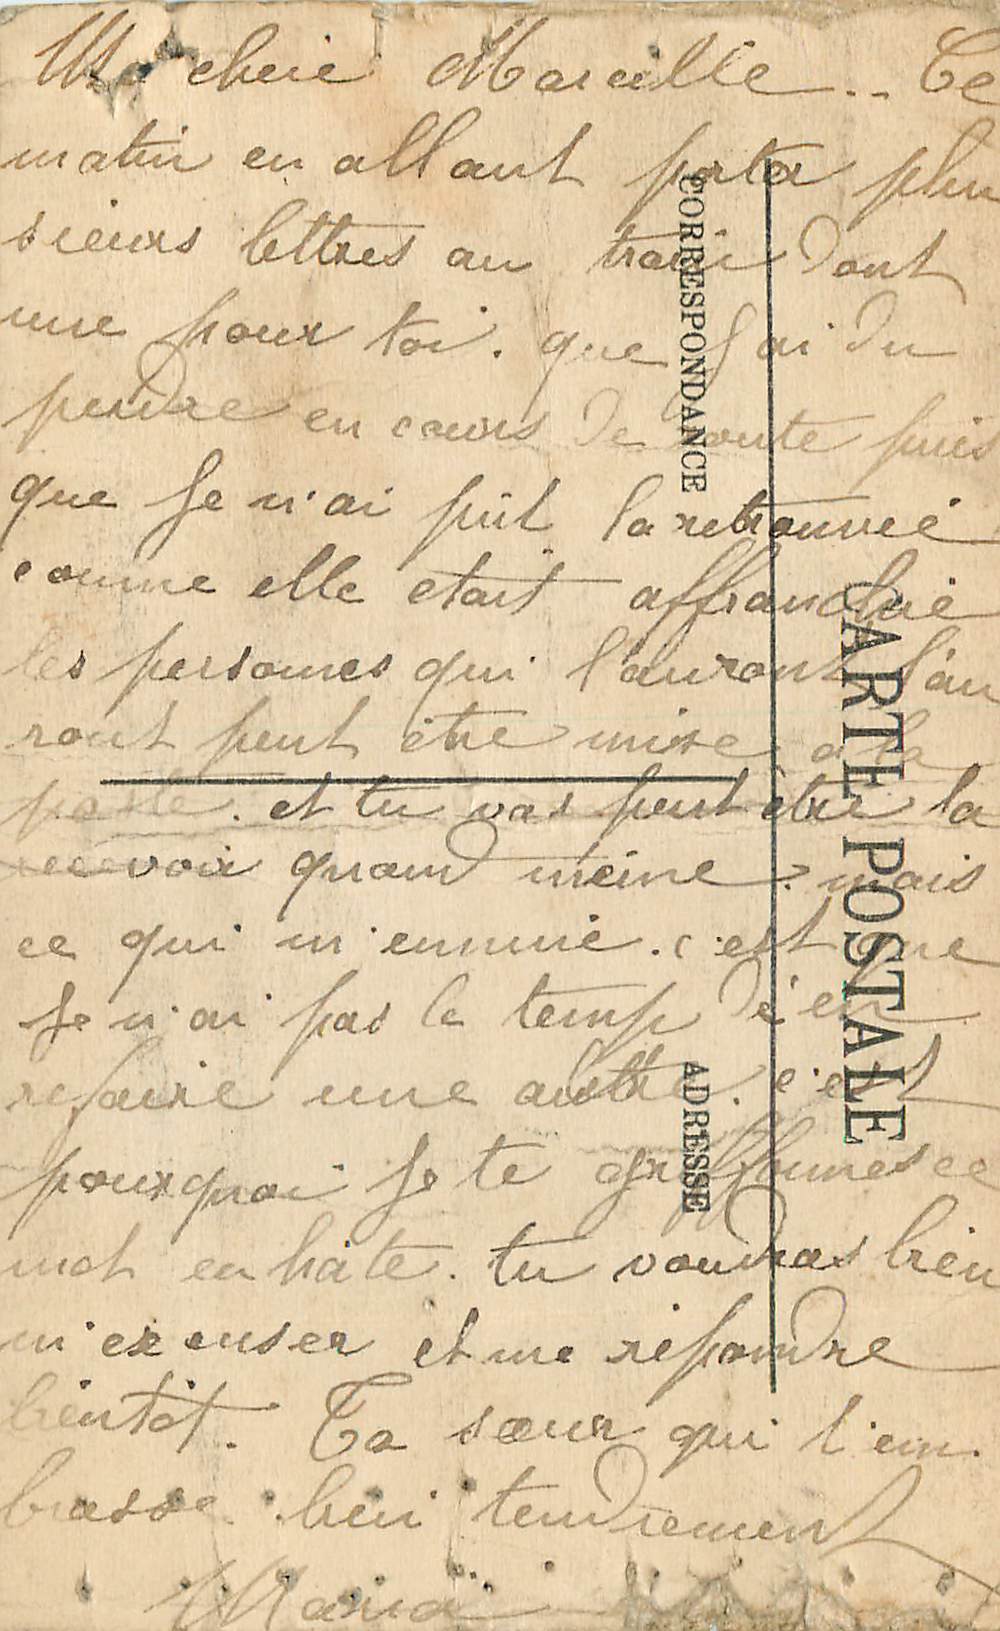 Ma cherie Marcelle.. Ce
matin en allant porter plu
sieurs lettres au train dont
une pour toi. que J'ai du
perdre en cours de route puis
que Je n'ai put la retrouveé
comme elle etait affranchie
les personnes qui l'auront l'au
ront peut être mise a la
poste. et tu vas peut être la
recevoir quand même. mais
ce qui m'ennuie. c'est que
Je n'ai pas le temp d'en
refaire une autre. c'est
pourquoi Je te griffonnes ce
mot en hâte. tu voudras bien
m'excuser et me repondre
bientôt. Ta sœur qui t'em.
brasse bien tendrement
Maria
CORRESPONDANCE
CARTE POSTALE
ADRESSE